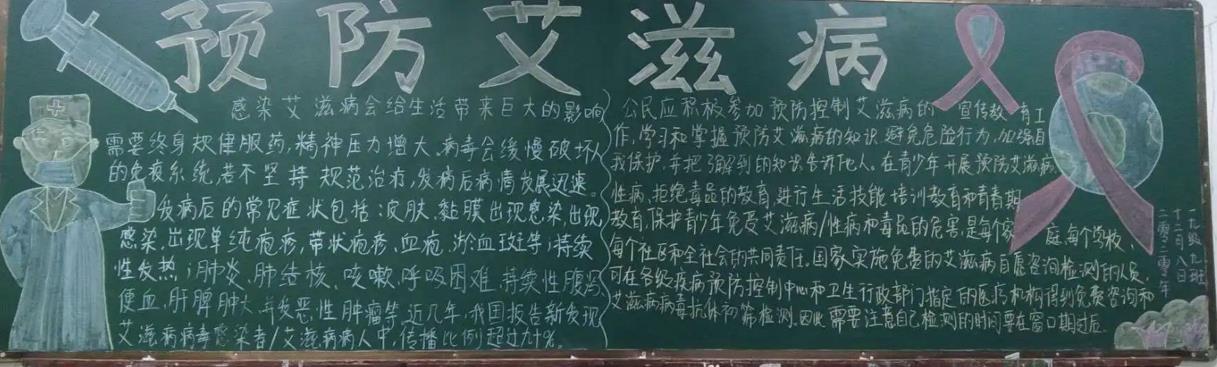 预防艾滋病
感染艾滋病会给生活带来巨大的影响
需要终身规律服药,精神压力增大。病毒会缓慢破坏人
的免疫系统,若不坚持规范治疗,发病后病情发展迅速。
发病后的常见症状包括:皮肤、黏膜出现感染,出现
感染,出现单纯疱疹,带状疱疹,血疱,淤血斑等;持续
性发热;肺炎、肺结核、咳嗽、呼吸困难、持续性腹泻
便血、肝脾肿大、并发恶性肿瘤等。近几年,我国报告新发现
艾滋病病毒感染者/艾滋病病人中,传播比例超过九十%。
公民应积极参加预防控制艾滋病的宣传教育工
作,学习和掌握预防艾滋病的知识,避免危险行为,加强自
我保护,并把了解到的知识告诉他人。在青少年开展预防艾滋病
性病、拒绝毒品的教育,进行生活技能培训教育和青春期
教育,保护青少年免受艾滋病/性病和毒品的危害,是每个家庭,每个学校、
每个社区和全社会的共同责任。国家实施免费的艾滋病自愿咨询检测的人员,
可在各级疾病预防控制中心和卫生行政部门指定的医疗机构得到免费咨询和
艾滋病病毒抗体初筛检测。因此需要注意自己检测的时间要在窗口期过后.
一九级九班
十二月八日
二零二零年